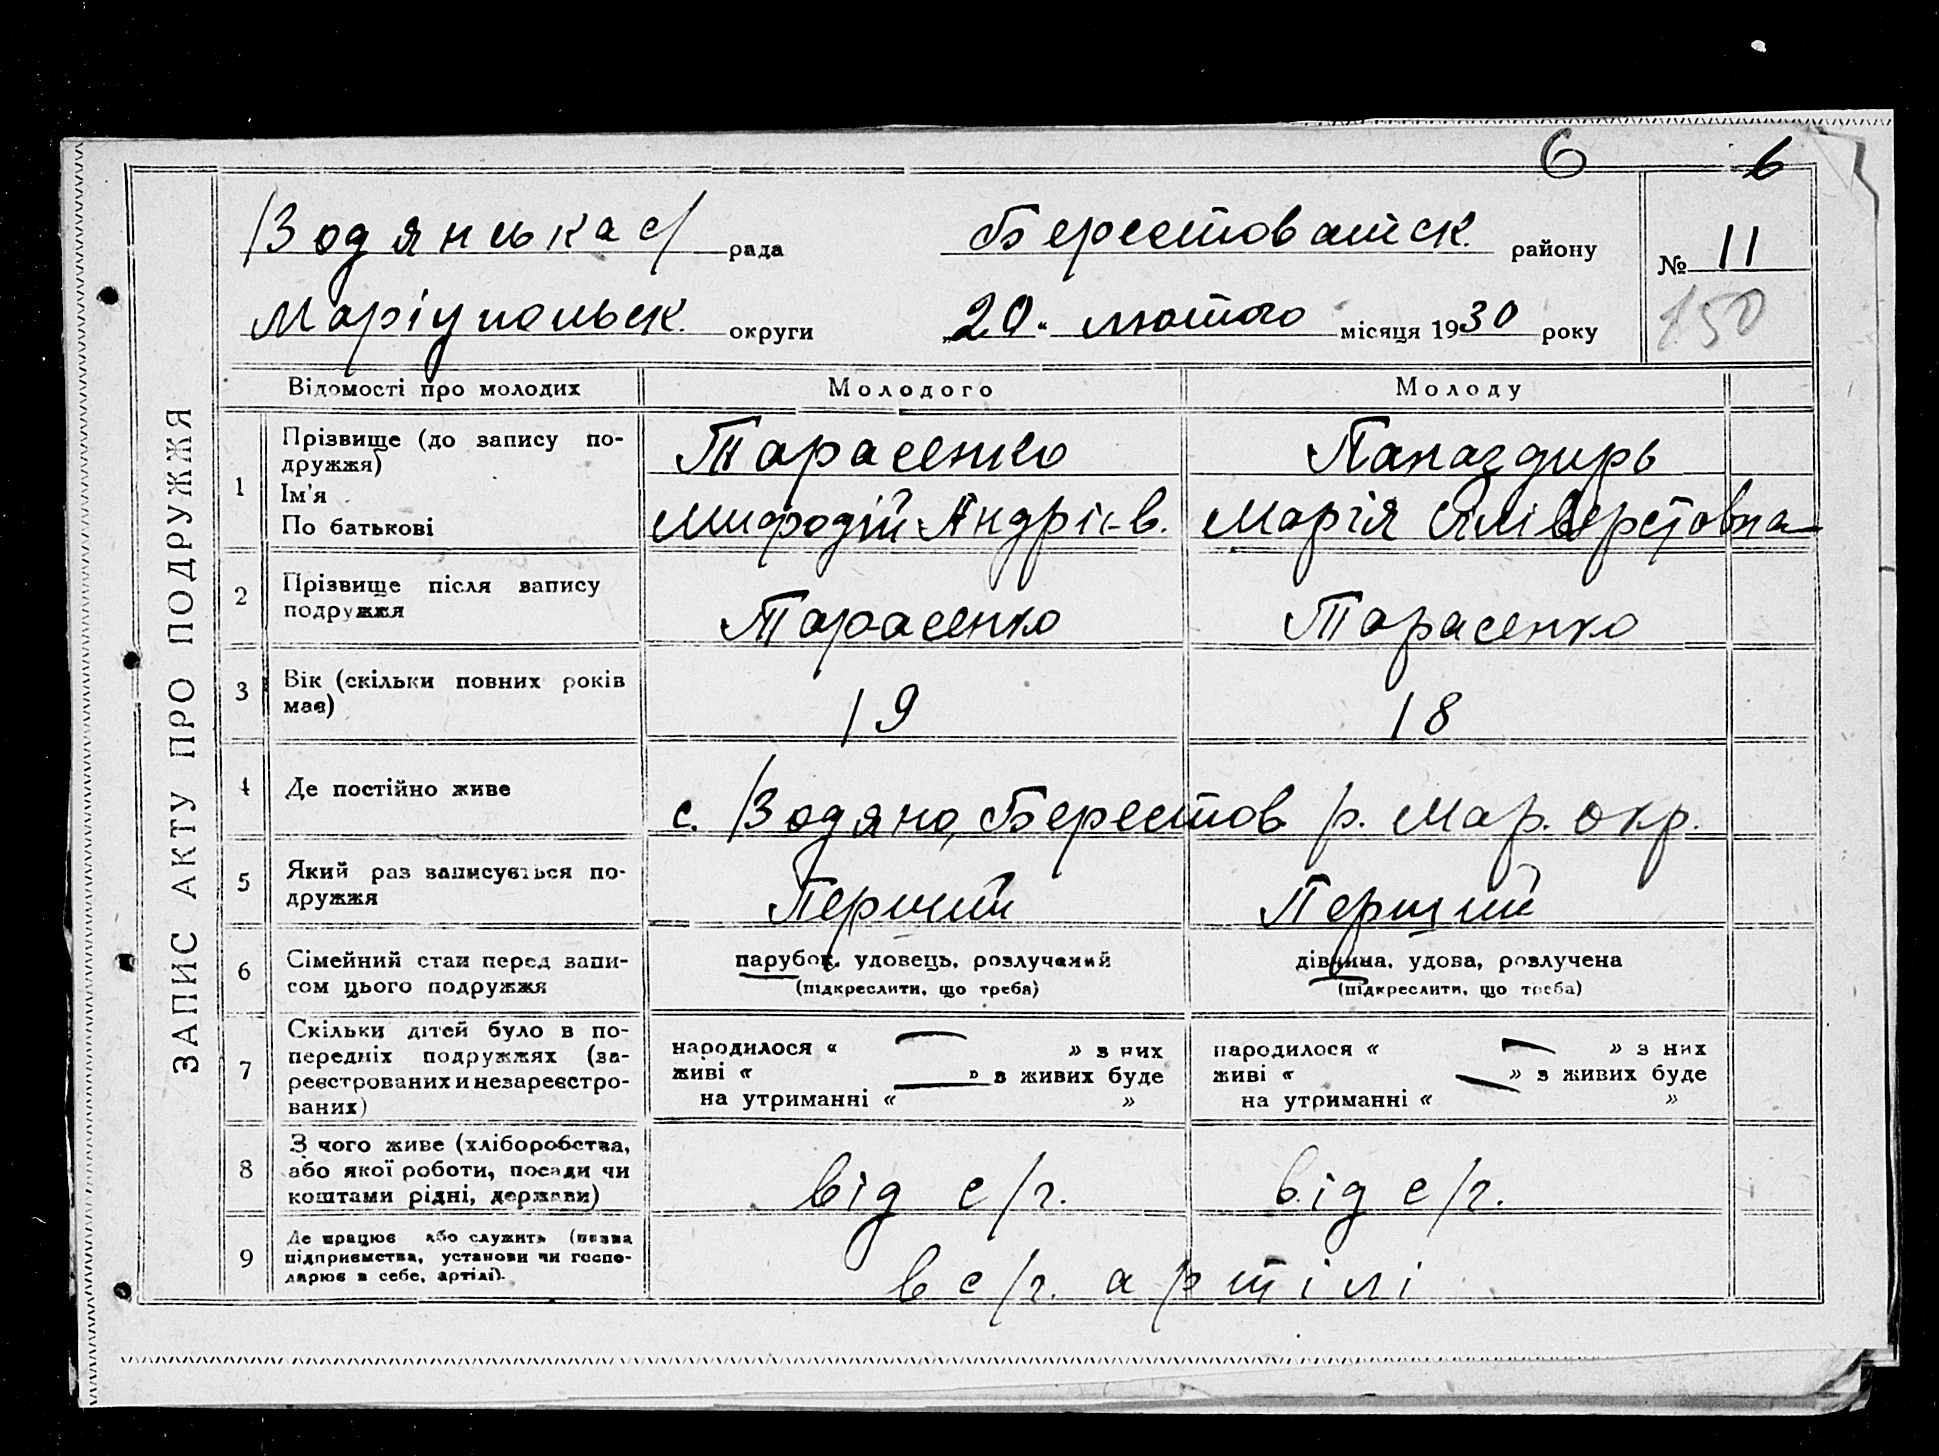 6 6
Водянська с/ рада Берестоватск. району № 11
Маріупольск. округи „20“ лютого місяця 1930 року 150
ЗАПИС АКТУ ПРО ПОДРУЖЖЯ
Відомості про молодих Молодого Молоду
1 Прізвище (до запису по-
дружжя) Тарасенко Папаздирь
Ім'я
По батькові Мифодій Андріїв. Марія Алівєрстовна
2 Прізвище після запису
подружжя Тарасенко Тарасенко
3 Вік (скільки повних років
має) 19 18
4 Де постійно живе с. Водяно, Берестов р. Мар. окр.
5 Який раз записується по-
дружжя Перший Перший
6 Сімейний стан перед запи- парубок, удовець, розлучений дівчина, удова, розлучена
сом цього подружжя (підкреслити, що треба) (підкреслити, що треба)
7 Скільки дітей було в по-
передніх подружжях (за-
реєстрованих и незареєстро-
ваних)
народилося « — » з них
живі « — » з живих буде
на утриманні « »
народилося « — » з них
живі « — » з живих буде
на утриманні « »
8 З чого живе (хліборобства,
або якої роботи, посади чи
коштами рідні, держави) від с/г. від с/г.
9 Де працює або служить (назва
підприємства, установи чи госпо-
дарює в себе, артілі). в с/г. артілі